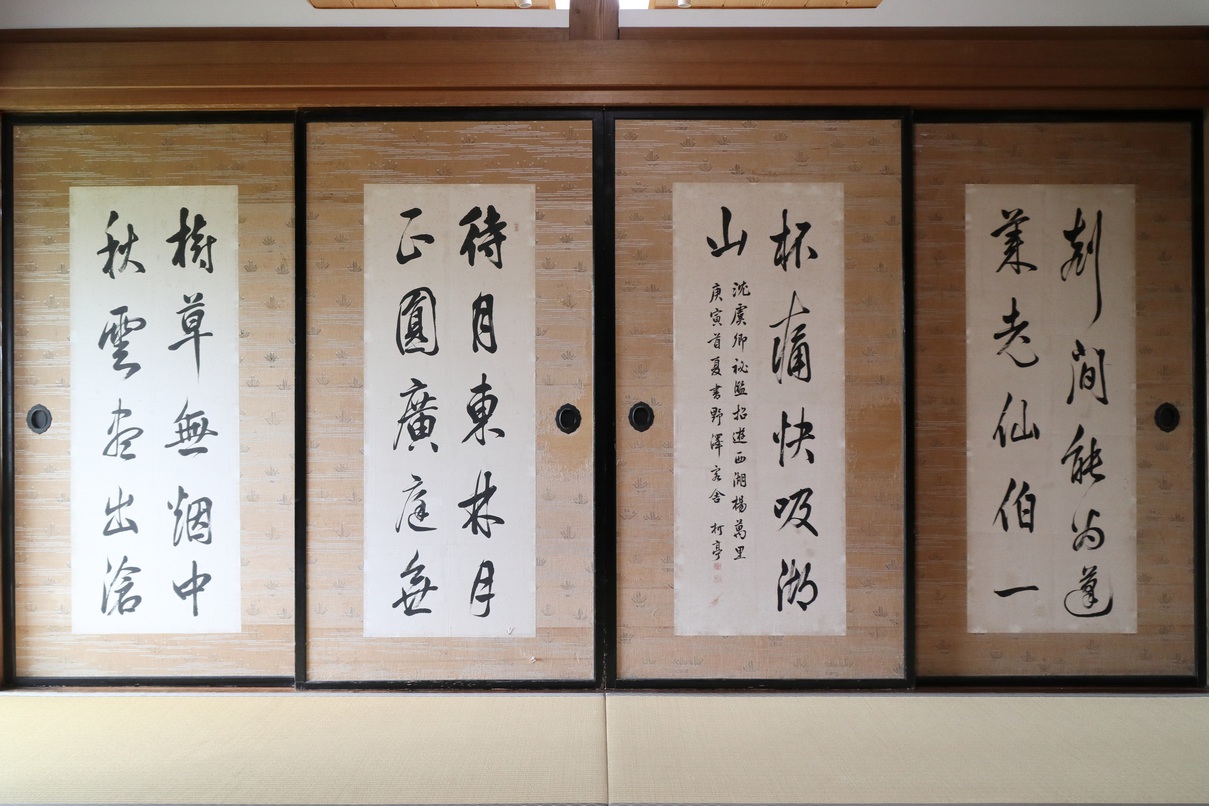 刹間能為蓬
莱老仙伯一
杯痛快吸湖
山
沈虞卿秘監招遊西湖楊萬里
庚寅首夏書野澤客舍 柯亭
待月東林月
正圓廣庭無
樹草無烟中
秋雲盡出滄